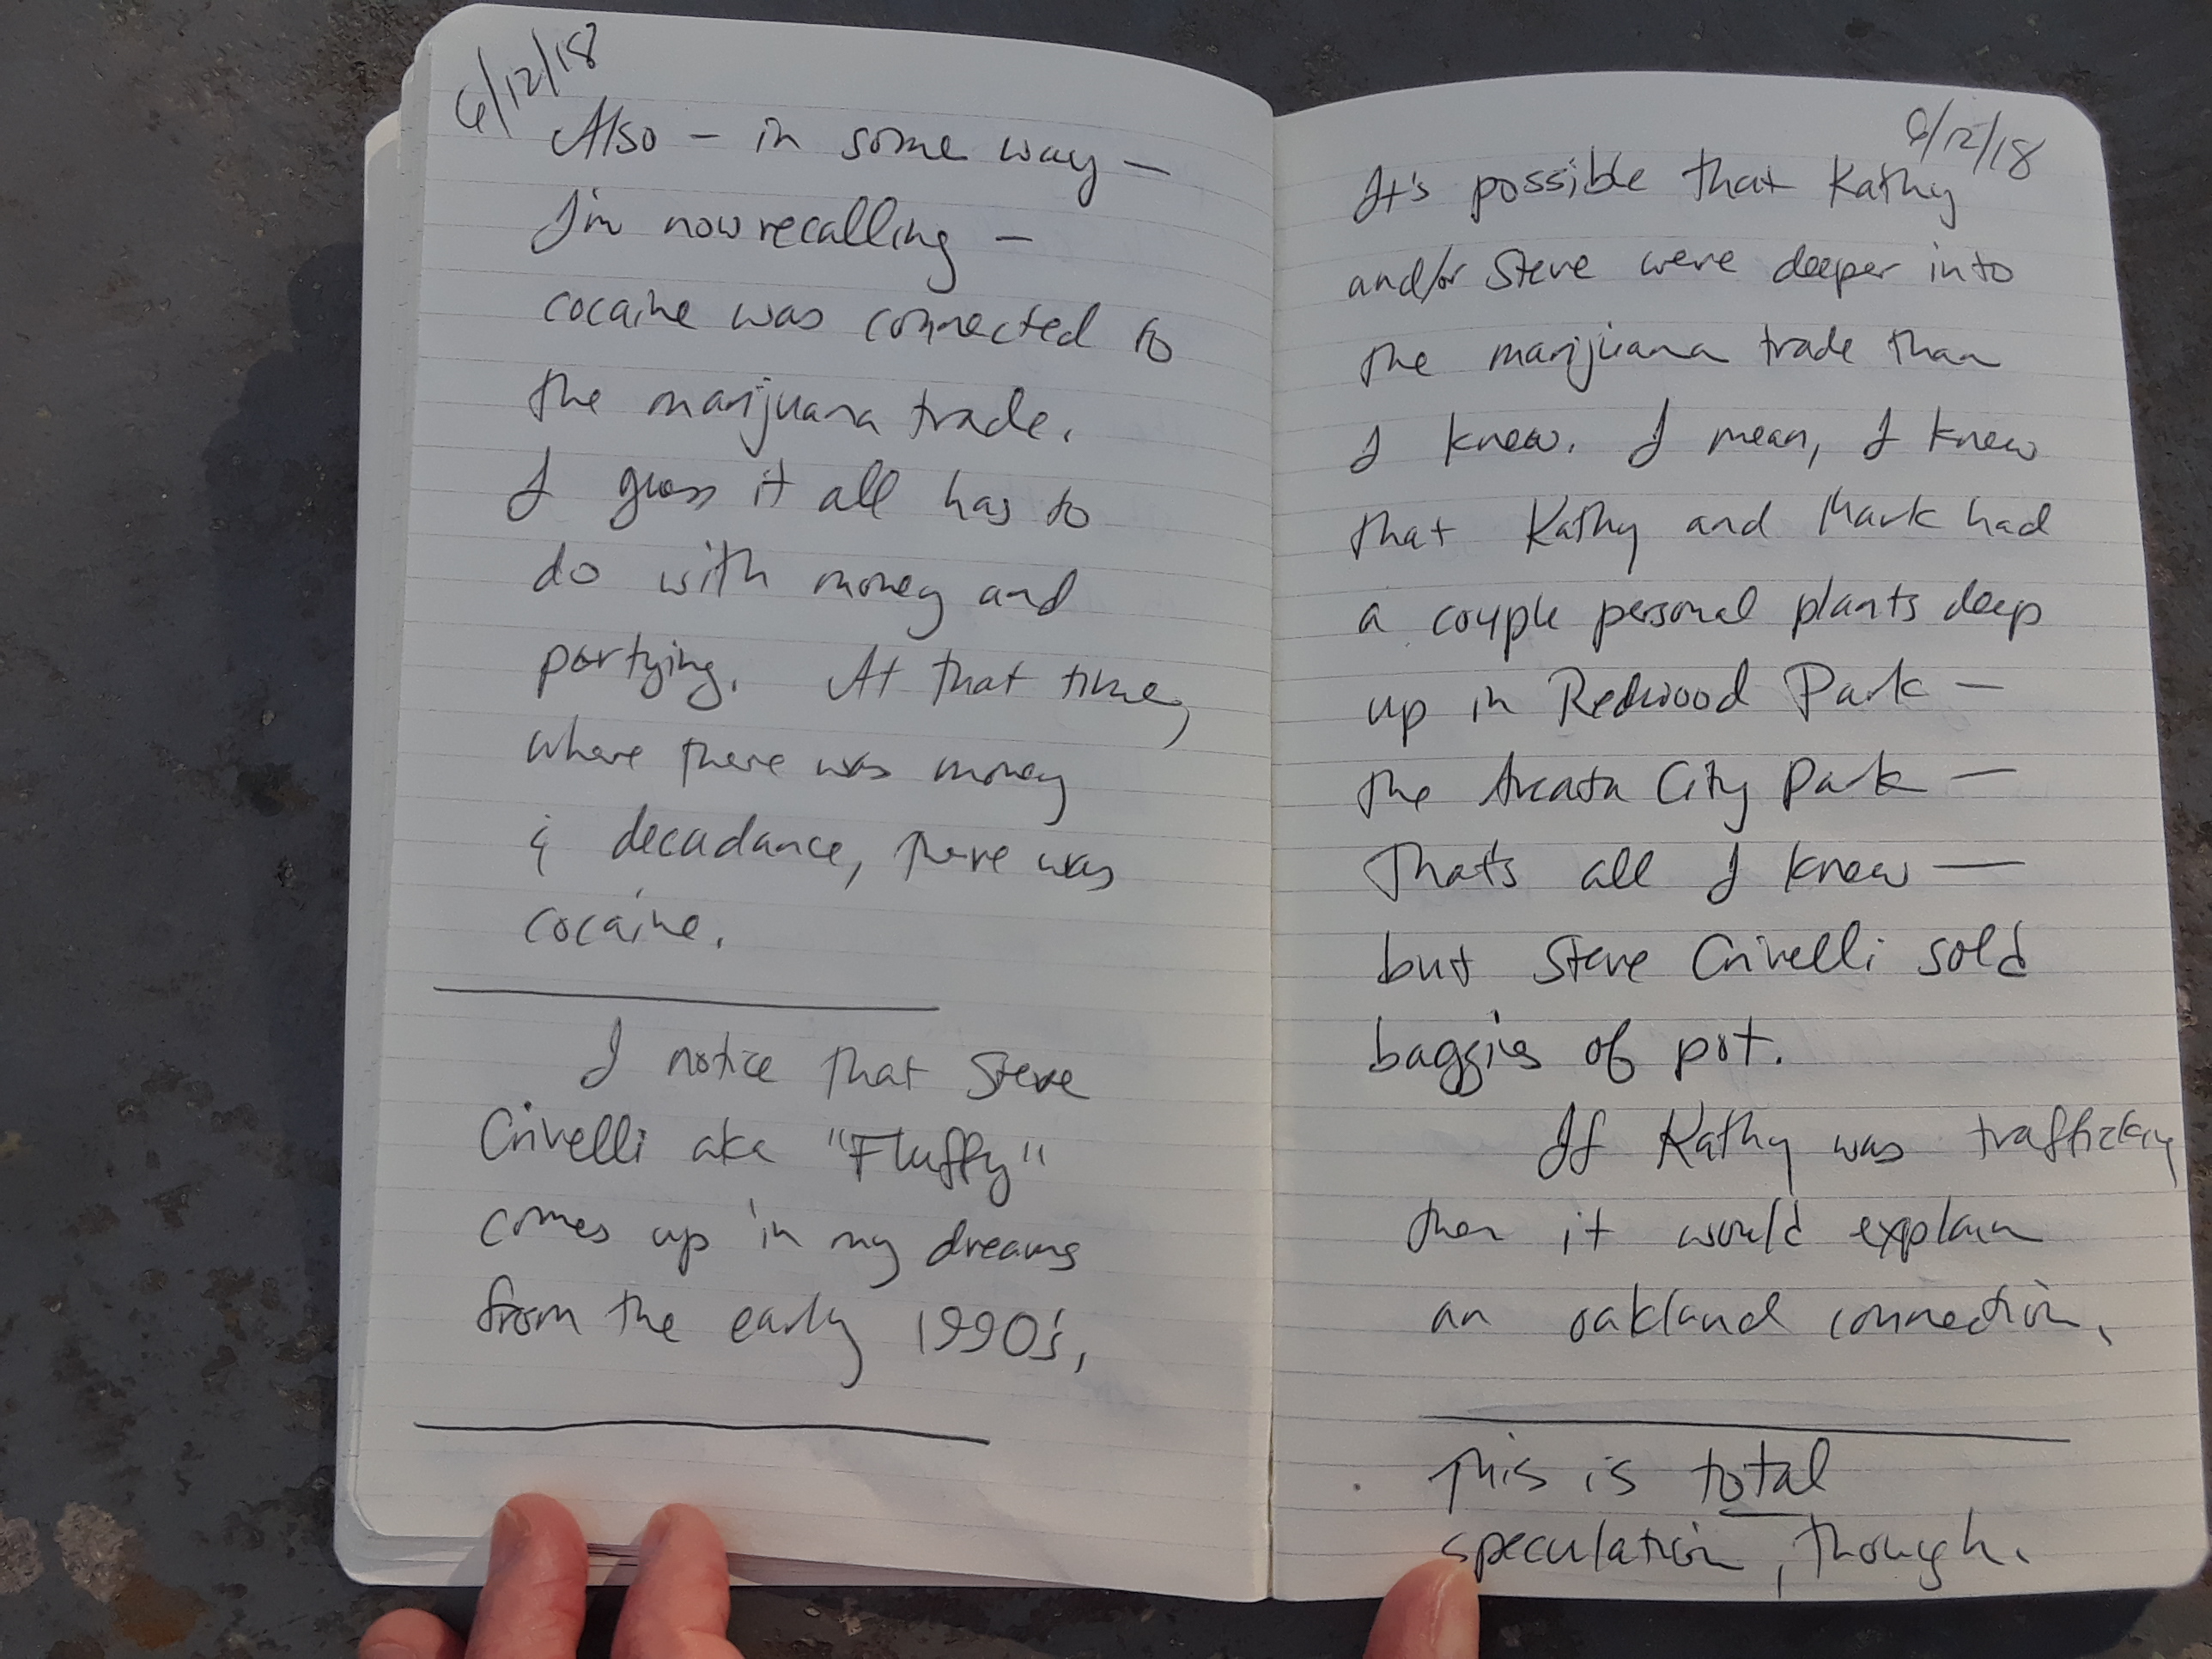 6/12/18
Also – in some way –
I'm now recalling –
cocaine was connected to
the marijuana trade.
I guess it all has to
do with money and
partying. At that time,
where there was money
& decadance, there was
cocaine.
I notice that Steve
Crivelli aka "Fluffy"
comes up in my dreams
from the early 1990's.
6/12/18
It's possible that Kathy
and/or Steve were deeper into
the marijuana trade than
I knew. I mean, I knew
that Kathy and Mark had
a couple personal plants deep
up in Redwood Park –
the Arcata City Park –
That's all I knew –
but Steve Crivelli sold
baggies of pot.
If Kathy was trafficking
then it would explain
an oakland connection.
This is total
speculation, though.